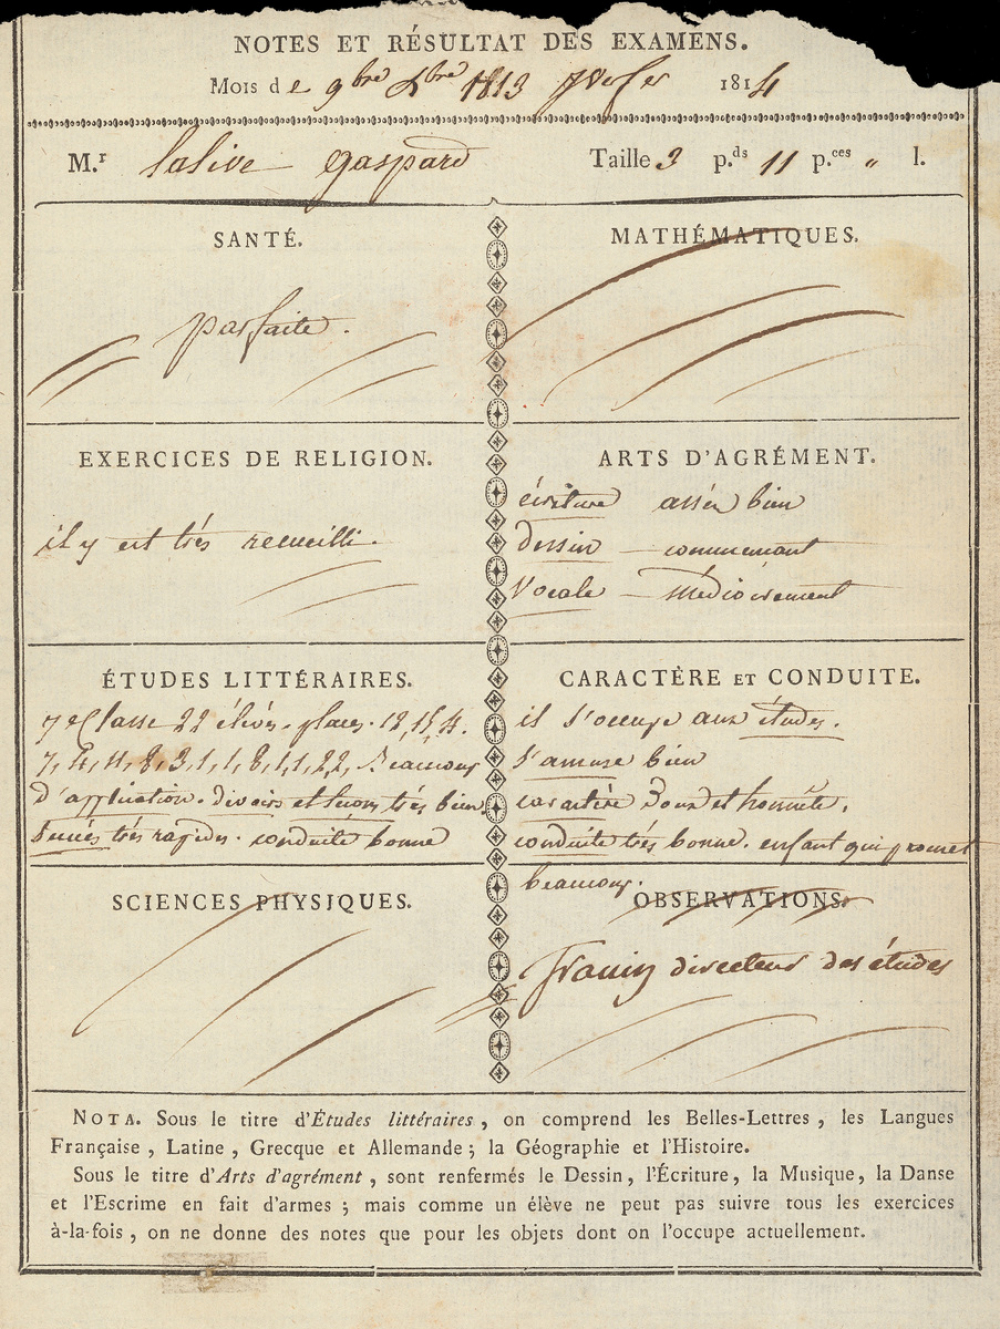 NOTES ET RÉSULTAT DES EXAMENS.
Mois de 9bre Xbre 1813 1814
M.r Lalive gaspard Taille 3 p.ds 11 p.ces " l.
SANTÉ.
parfaite.
MATHÉMATIQUES.
EXERCICES DE RELIGION.
il y est très recueilli.
ARTS D'AGRÉMENT.
écriture asséz bien
dessin – commencant
Vocale – médiocrement
ÉTUDES LITTÉRAIRES.
7e Classe 22 élèves. places. 12, 15, 4.
7, 4, 8, 3, 1, 1, 8, 1, 1, 2, 2, Beaucoup
d'application. devoirs et lecons très bien
Succès très rapides. conduite bonne
CARACTÈRE ET CONDUITE.
il s'occupe aux études.
s'amuse bien
caractère doux et honnête,
conduite très bonne. enfant qui promet
beaucoup.
SCIENCES PHYSIQUES.
OBSERVATIONS.
directeur des études
NOTA. Sous le titre d'Études littéraires, on comprend les Belles-Lettres, les Langues
Française, Latine, Grecque et Allemande; la Géographie et l'Histoire.
Sous le titre d'Arts d'agrément, sont renfermés le Dessin, l'Écriture, la Musique, la Danse
et l'Escrime en fait d'armes; mais comme un élève ne peut pas suivre tous les exercices
à-la-fois, on ne donne des notes que pour les objets dont on l'occupe actuellement.